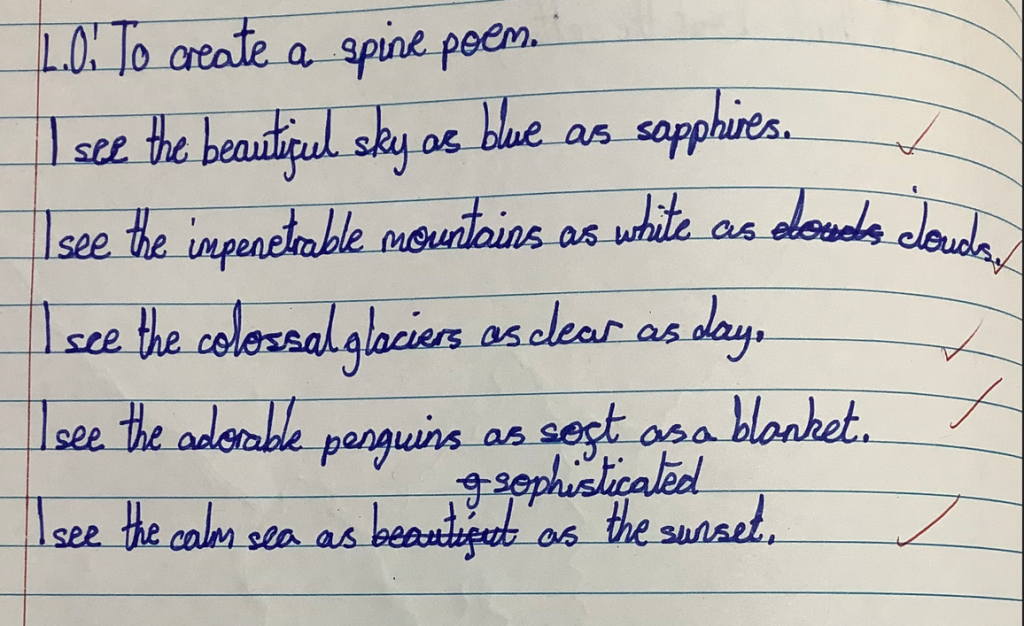 L.O: To create a spine poem.
I see the beautiful sky as blue as sapphires.
I see the impenetrable mountains as white as clouds clouds.
I see the colossal glaciers as clear as day.
I see the adorable penguins as soft as a blanket.
sophisticated
I see the calm sea as beautiful as the sunset.